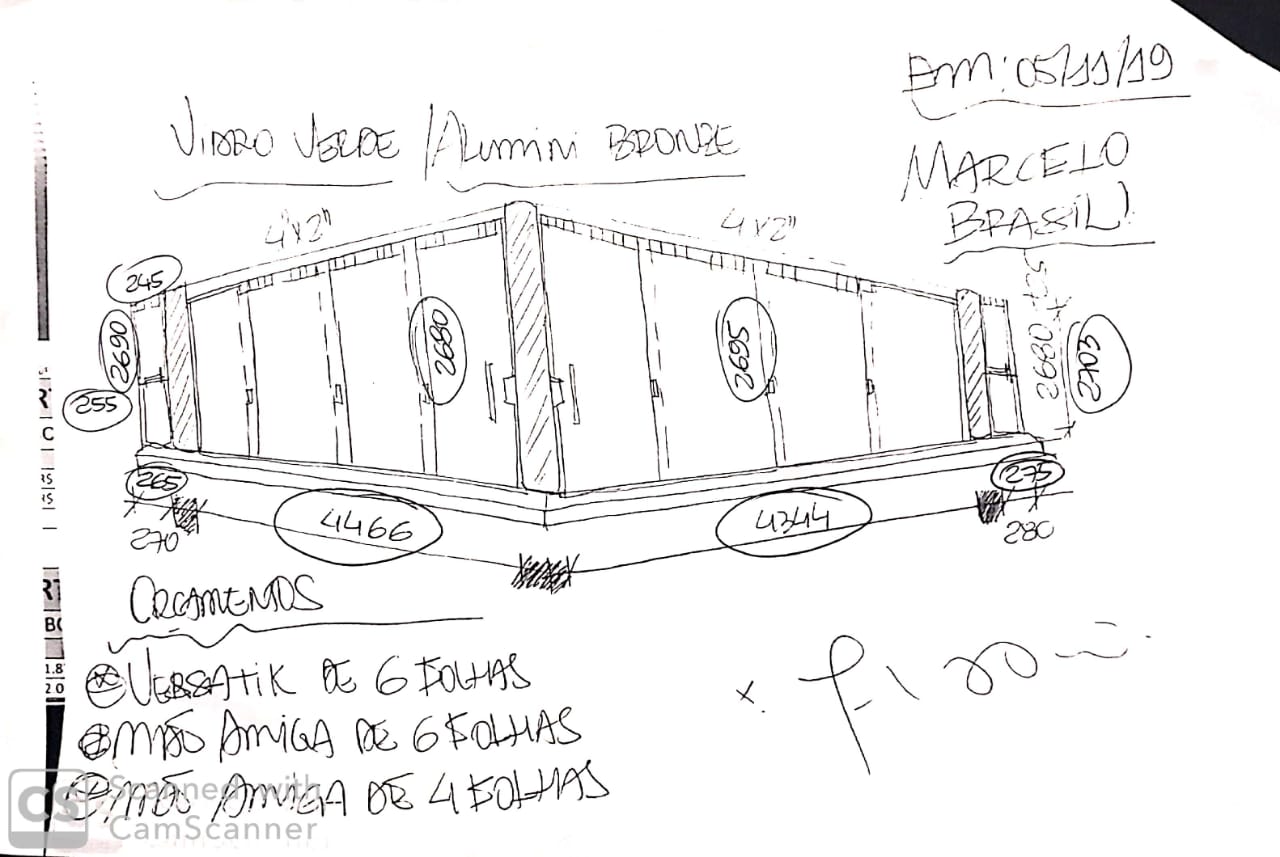 Em: 05/11/19
VIDRO VERDE / ALUMINI BRONZE
MARCELO
BRASIL!
4x2"
4x2"
245
2690
255
2680
2695
2680
3072
265
275
270
4466
4344
280
ORÇAMENTOS
VERSATIK DE 6 FOLHAS
MÃO AMIGA DE 6 FOLHAS
MÃO AMIGA DE 4 FOLHAS
CS Scanned with
CamScanner